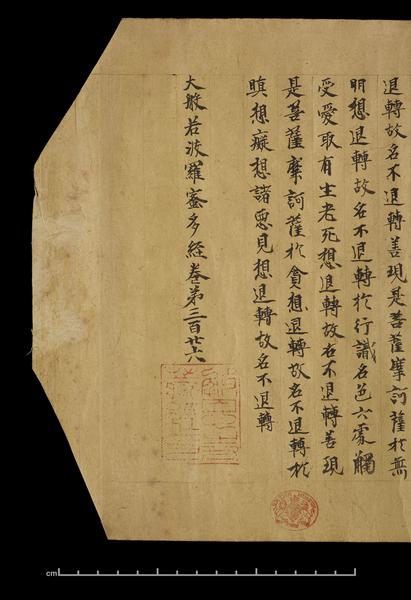 退轉故名不退轉善現是菩薩摩訶薩於無
明想退轉故名不退轉於行識名色六處觸
受愛取有生老死想退轉故名不退轉善現
是菩薩摩訶薩於貪想退轉故名不退轉於
瞋想癡想諸惡見想退轉故名不退轉
大般若波羅蜜多經卷第三百廿六
cm